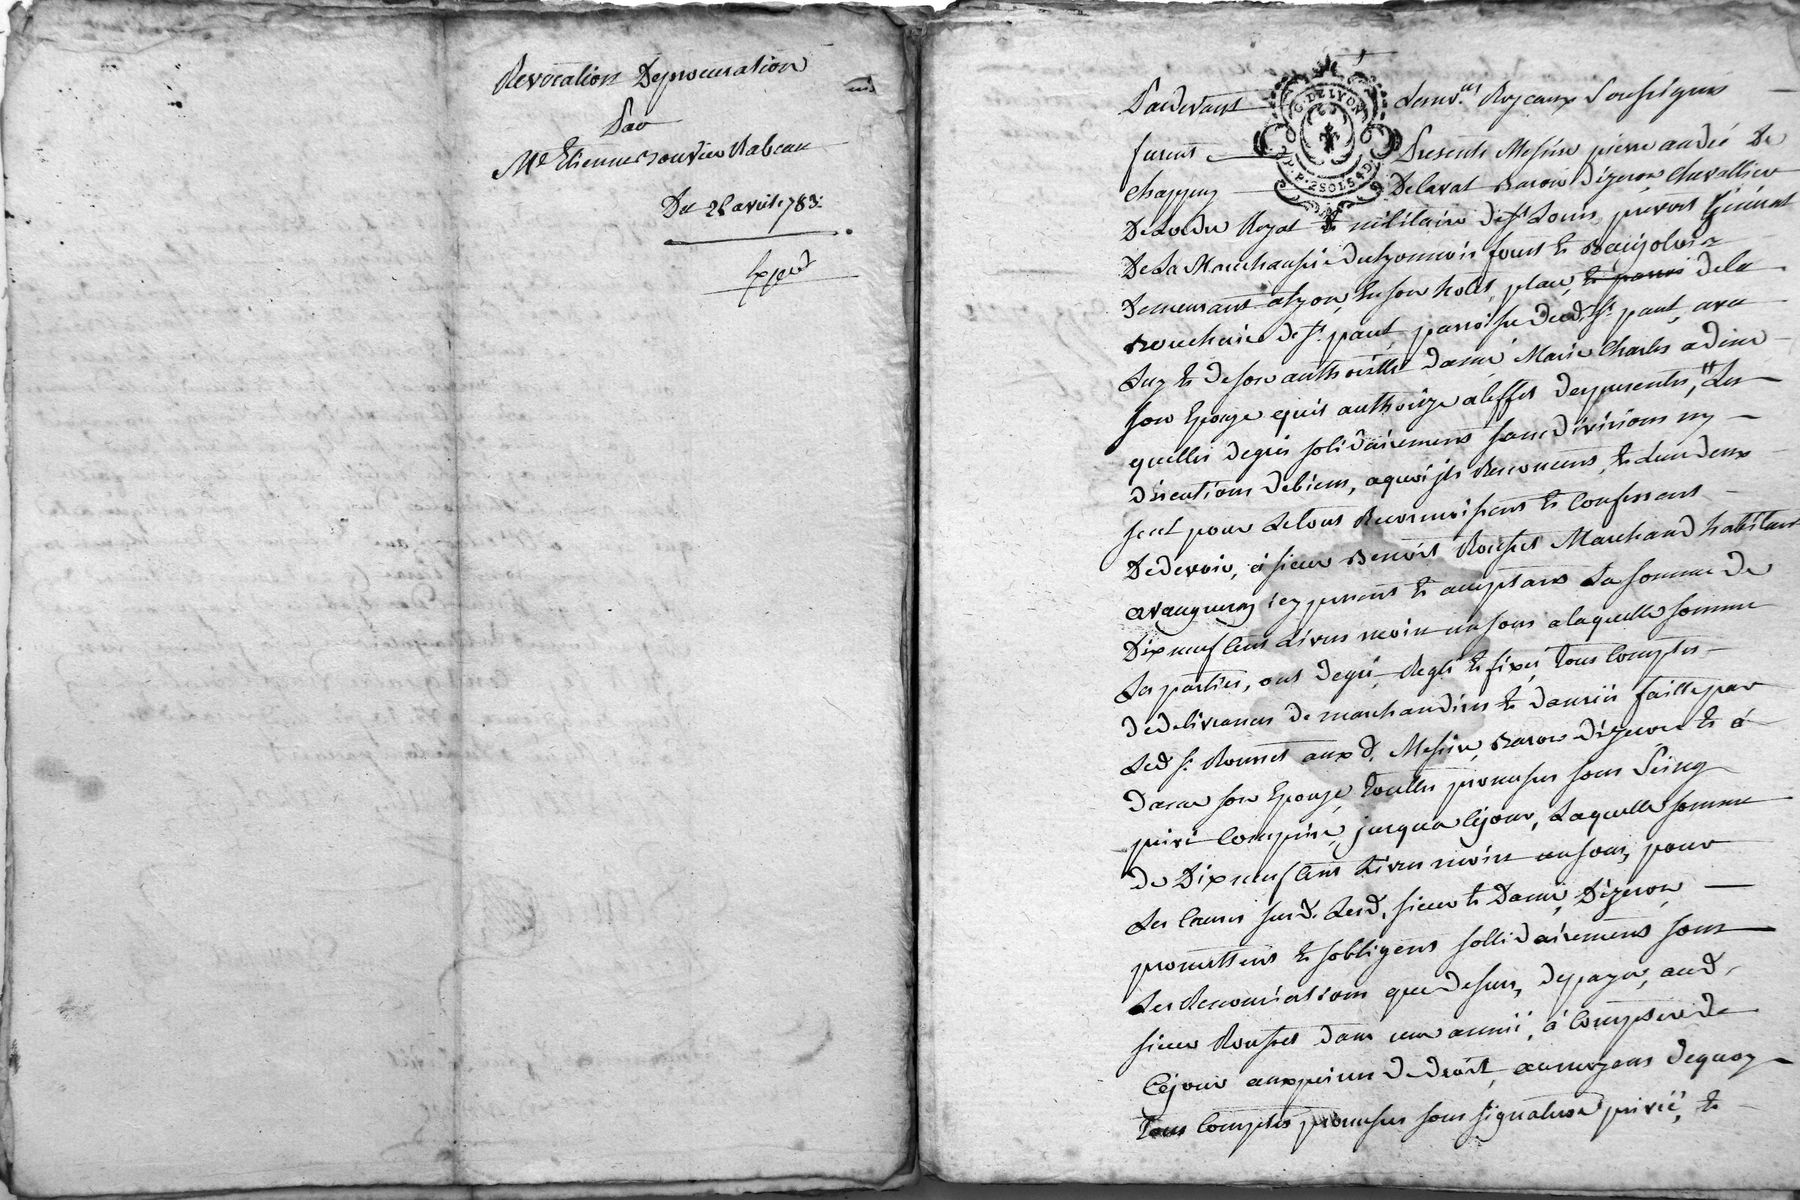 Revocation Deprocuration
Par
Me Etienne Bouvier Rabeau
Du 28 avril 1783.
Expé
Pardevant les nres. Royeaux Soussignes
furent Presents Messire pierre andré De
Chappuy Delavat Baron Dizeron Chevallier
De Lordre Royal et militaire de st Louis, prevost Général
De La Marechaussée du Lyonnois forest et Beaujolois
Demeurant alyon, en son hotel, place, et parroi dela
Boucherie de st. paul, parroisse dud. st. paul, avec
Luy et de son authoritté Dame Marie Charles
son Epouse quil authorize aleffet des presentes, Les
quelles degrés solidairement sans divisions ny
discutions debiens, aquoi ils Renoncent, et Lun deux
seul pour Letout Reconnoissent et Confessent
Dedevoir, à sieur Benoist Rousset Marchand habitant
avaugneray icy present et acceptant La somme de
Dix neuf Cent Livres moins un sous alaquelle somme
Les parties, ont degré, Reglé et fixé, tous Comptes
dedelivrances de marchandises et danrées faitte par
Led. sr. Rousset aux d. Messire Baron Dizeron et à
Dame son Epouse, touttes promesses sous Seing
privé Comprise, jusqua Cejour, Laquelle somme
de Dix neuf Cent Livres moins un sous, pour
Les Causes susd. Lesd. sieur et Dame, Dizeron,
promettent et sobligent sollidairement sous
Les Renonciations que dessus, depayer, aud.
sieur Rousset dans une année, à Compter de
Cejour aux peines de droit, aumoyens dequoy
tous Comptes promesses sous signature privée, et
G. DE LYON
P. P. 2 SOLS 4 D.